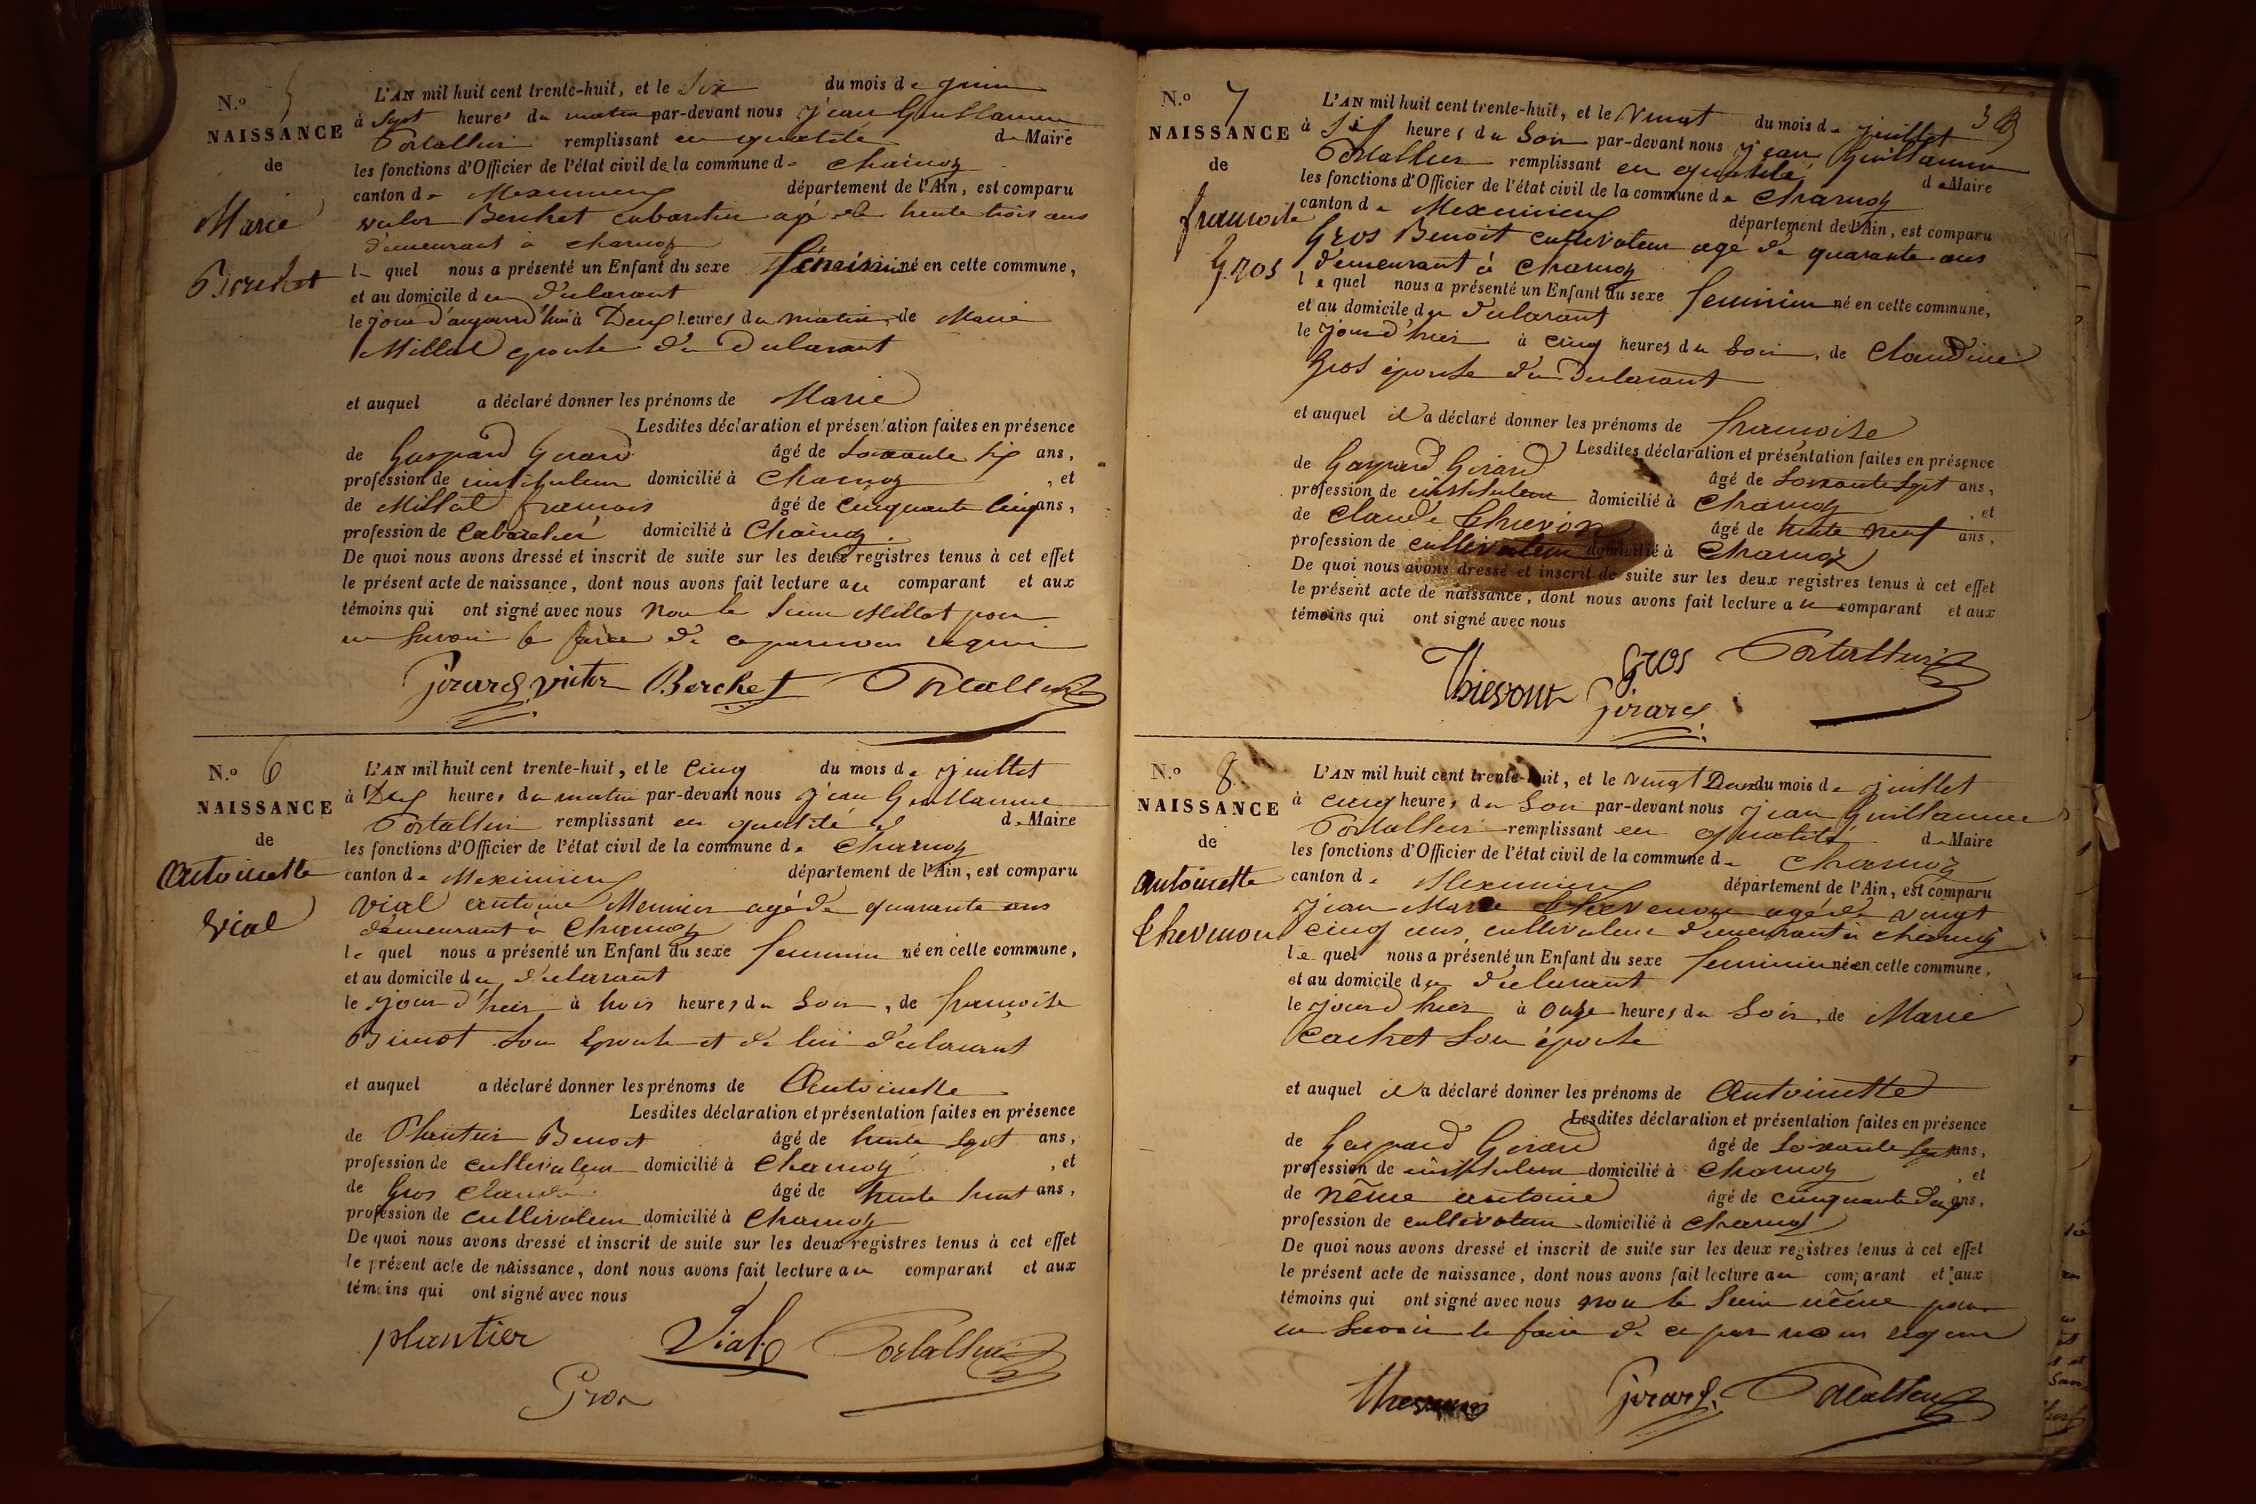 N.º 5
NAISSANCE
de
Marie
Berchet
L'AN mil huit cent trente-huit, et le Six du mois de juin
à Sept heures du matin par-devant nous jean Guillaume
Portallier remplissant en qualité de Maire
les fonctions d'Officier de l'état civil de la commune de Charnoz
canton de Meximieux département de l'Ain, est comparu
victor Berchet cabaretier agé de trente trois ans
demeurant à charnoz
lequel nous a présenté un Enfant du sexe féminin né en cette commune,
et au domicile du déclarant
le jour d'aujourd'hui à Deux heures du matin, de Marie
Millat epouse du Déclarant
et auquel a déclaré donner les prénoms de Marie
Lesdites déclaration et présentation faites en présence
de Gaspard Girard âgé de Soixante six ans,
profession de instituteur domicilié à Charnoz, et
de Millat francois âgé de cinquante cinq ans,
profession de Cabaretier domicilié à Charnoz.
De quoi nous avons dressé et inscrit de suite sur les deux registres tenus à cet effet
le présent acte de naissance, dont nous avons fait lecture au comparant et aux
témoins qui ont signé avec nous non le Sieur Millat pour
ne Savoir le faire de ce par nous requis
girard victor Berchet Portallier
N.º 6
NAISSANCE
de
Antoinette
Vial
L'AN mil huit cent trente-huit, et le Cinq du mois de juillet
à Dix heures du matin par-devant nous jean Guillaume
Portallier remplissant en qualité de Maire
les fonctions d'Officier de l'état civil de la commune de Charnoz
canton de Meximieux département de l'Ain, est comparu
Vial antoine Meunier agé de quarante ans
demeurant à Charnoz
lequel nous a présenté un Enfant du sexe feminin né en cette commune,
et au domicile du déclarant
le jour d'hier à trois heures du Soir, de francoise
Son Epouse et de lui déclarant
et auquel a déclaré donner les prénoms de Antoinette
Lesdites déclaration et présentation faites en présence
de Plantier Benoit âgé de trente Sept ans,
profession de cultivateur domicilié à Charnoz, et
de Gros Claude âgé de trente huit ans,
profession de Cultivateur domicilié à Charnoz
De quoi nous avons dressé et inscrit de suite sur les deux registres tenus à cet effet
le présent acte de naissance, dont nous avons fait lecture au comparant et aux
témoins qui ont signé avec nous
plantier Vial Portallier
Gros
N.º 7
NAISSANCE
de
francoise
Gros
3
L'AN mil huit cent trente-huit, et le Vingt du mois de juillet
à Six heures du Soir par-devant nous jean Guillaume
Portallier remplissant en qualité de Maire
les fonctions d'Officier de l'état civil de la commune de Charnoz
canton de Meximieux département de l'Ain, est comparu
Gros Benoit cultivateur agé de quarante ans
demeurant à Charnoz
lequel nous a présenté un Enfant du sexe feminin né en cette commune,
et au domicile du déclarant
le jour d'hier à cinq heures du Soir, de Claudine
Gros épouse du Déclarant
et auquel il a déclaré donner les prénoms de francoise
Lesdites déclaration et présentation faites en présence
de Gaspard Girard âgé de Soixante Sept ans,
profession de instituteur domicilié à Charnoz, et
de Claude Thievon âgé de trente neuf ans,
profession de cultivateur domicilié à Charnoz
De quoi nous avons dressé et inscrit de suite sur les deux registres tenus à cet effet
le présent acte de naissance, dont nous avons fait lecture au comparant et aux
témoins qui ont signé avec nous
Thievont Gros Portallier
girard
N.º 8
NAISSANCE
de
Antoinette
L'AN mil huit cent trente-huit, et le vingt Deux du mois de juillet
à cinq heures du Soir par-devant nous jean Guillaume
Portallier remplissant en qualité de Maire
les fonctions d'Officier de l'état civil de la commune de Charnoz
canton de Meximieux département de l'Ain, est comparu
jean Marie Thevenon agé de vingt
cinq ans, cultivateur demeurant à charnoz
lequel nous a présenté un Enfant du sexe feminin né en cette commune,
et au domicile du déclarant
le jour d'hier à onze heures du Soir, de Marie
cachet Son épouse
et auquel il a déclaré donner les prénoms de Antoinette
Lesdites déclaration et présentation faites en présence
de Gaspard Girard âgé de Soixante Sept ans,
profession de instituteur domicilié à Charnoz, et
de Même antoine âgé de cinquante deux ans,
profession de cultivateur domicilié à Charnoz
De quoi nous avons dressé et inscrit de suite sur les deux registres tenus à cet effet
le présent acte de naissance, dont nous avons fait lecture au comparant et aux
témoins qui ont signé avec nous non le Sieur Même pour
ne Savoir le faire de ce par nous requis
girard Portallier